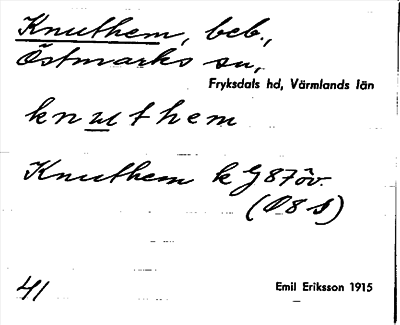 Knuthem, beb.,
Östmarks sn,
Fryksdals hd, Värmlands län
knuthem
Knuthem k G 87 öv.
(Ö8 s)
41
Emil Eriksson 1915